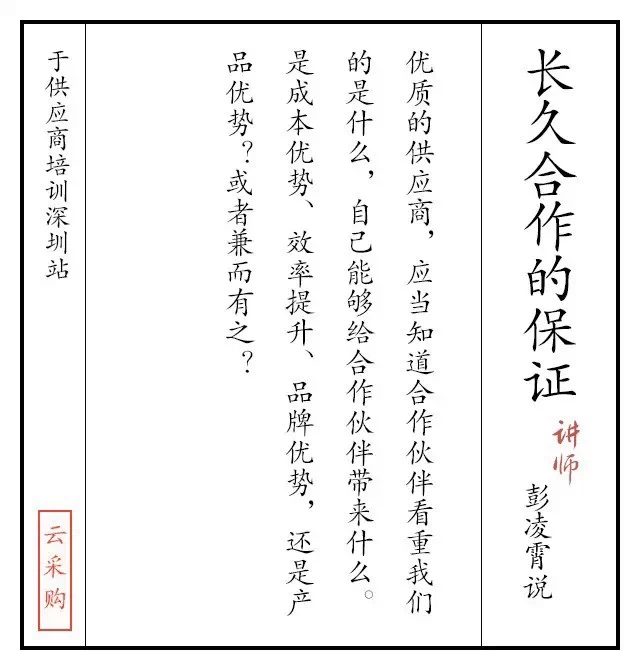 长久合作的保证
讲师
彭凌霄说
优质的供应商，应当知道合作伙伴看重我们
的是什么，自己能够给合作伙伴带来什么。
是成本优势、效率提升、品牌优势，还是产
品优势？或者兼而有之？
于供应商培训深圳站
云采购